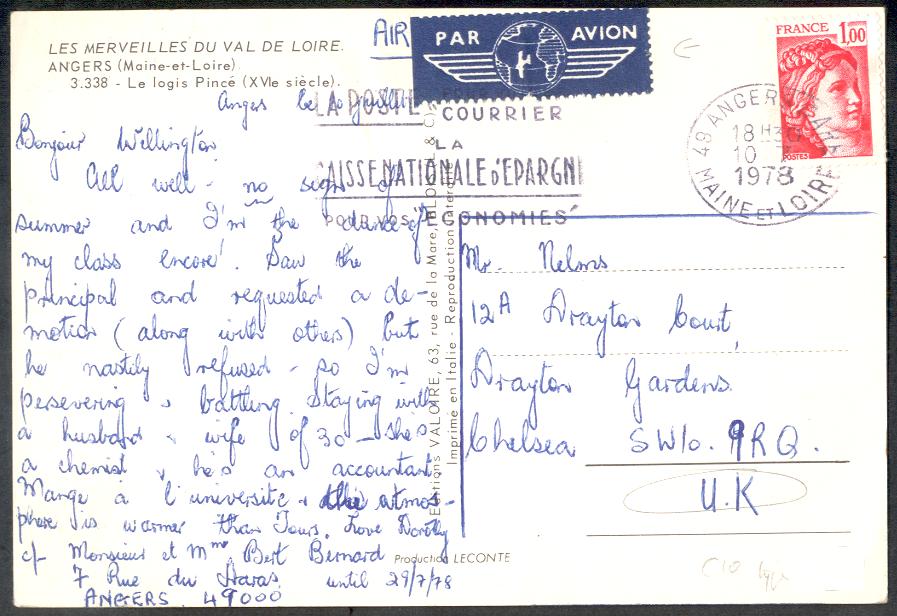 LES MERVEILLES DU VAL DE LOIRE.
ANGERS (Maine-et-Loire)
3.338 - Le logis Pincé (XVIe siècle).
AIR
PAR AVION
FRANCE 1,00
POSTES
LA POSTE
COURRIER
LA
CAISSE NATIONALE D'EPARGNE
POUR VOS "ECONOMIES"
49 ANGERS
18H30
10
1978
MAINE ET LOIRE
Angers le 10 juillet
Bonjour Wellington
All well - no sign of
summer and I'm the dunce of
my class encore! Saw the
principal and requested a de-
motion (along with others) but
he nastily refused - so I'm
persevering & battling. Staying with
a husband & wife of 30 - she's
a chemist & he's an accountant.
Mange à l'université & the atmos-
phere is warmer than Tours. Love Dorothy
c/- Monsieur et Mme Bert Bernard
7 Rue du Haras until 29/7/78
ANGERS 49000
Editions VALOIRE, 63, rue de la Mare, BLOIS
Imprimé en Italie - Reproduction interdite
Production LECONTE
Mr. Nelms
12A Drayton Court,
Drayton Gardens
Chelsea SW10. 9RQ.
U.K